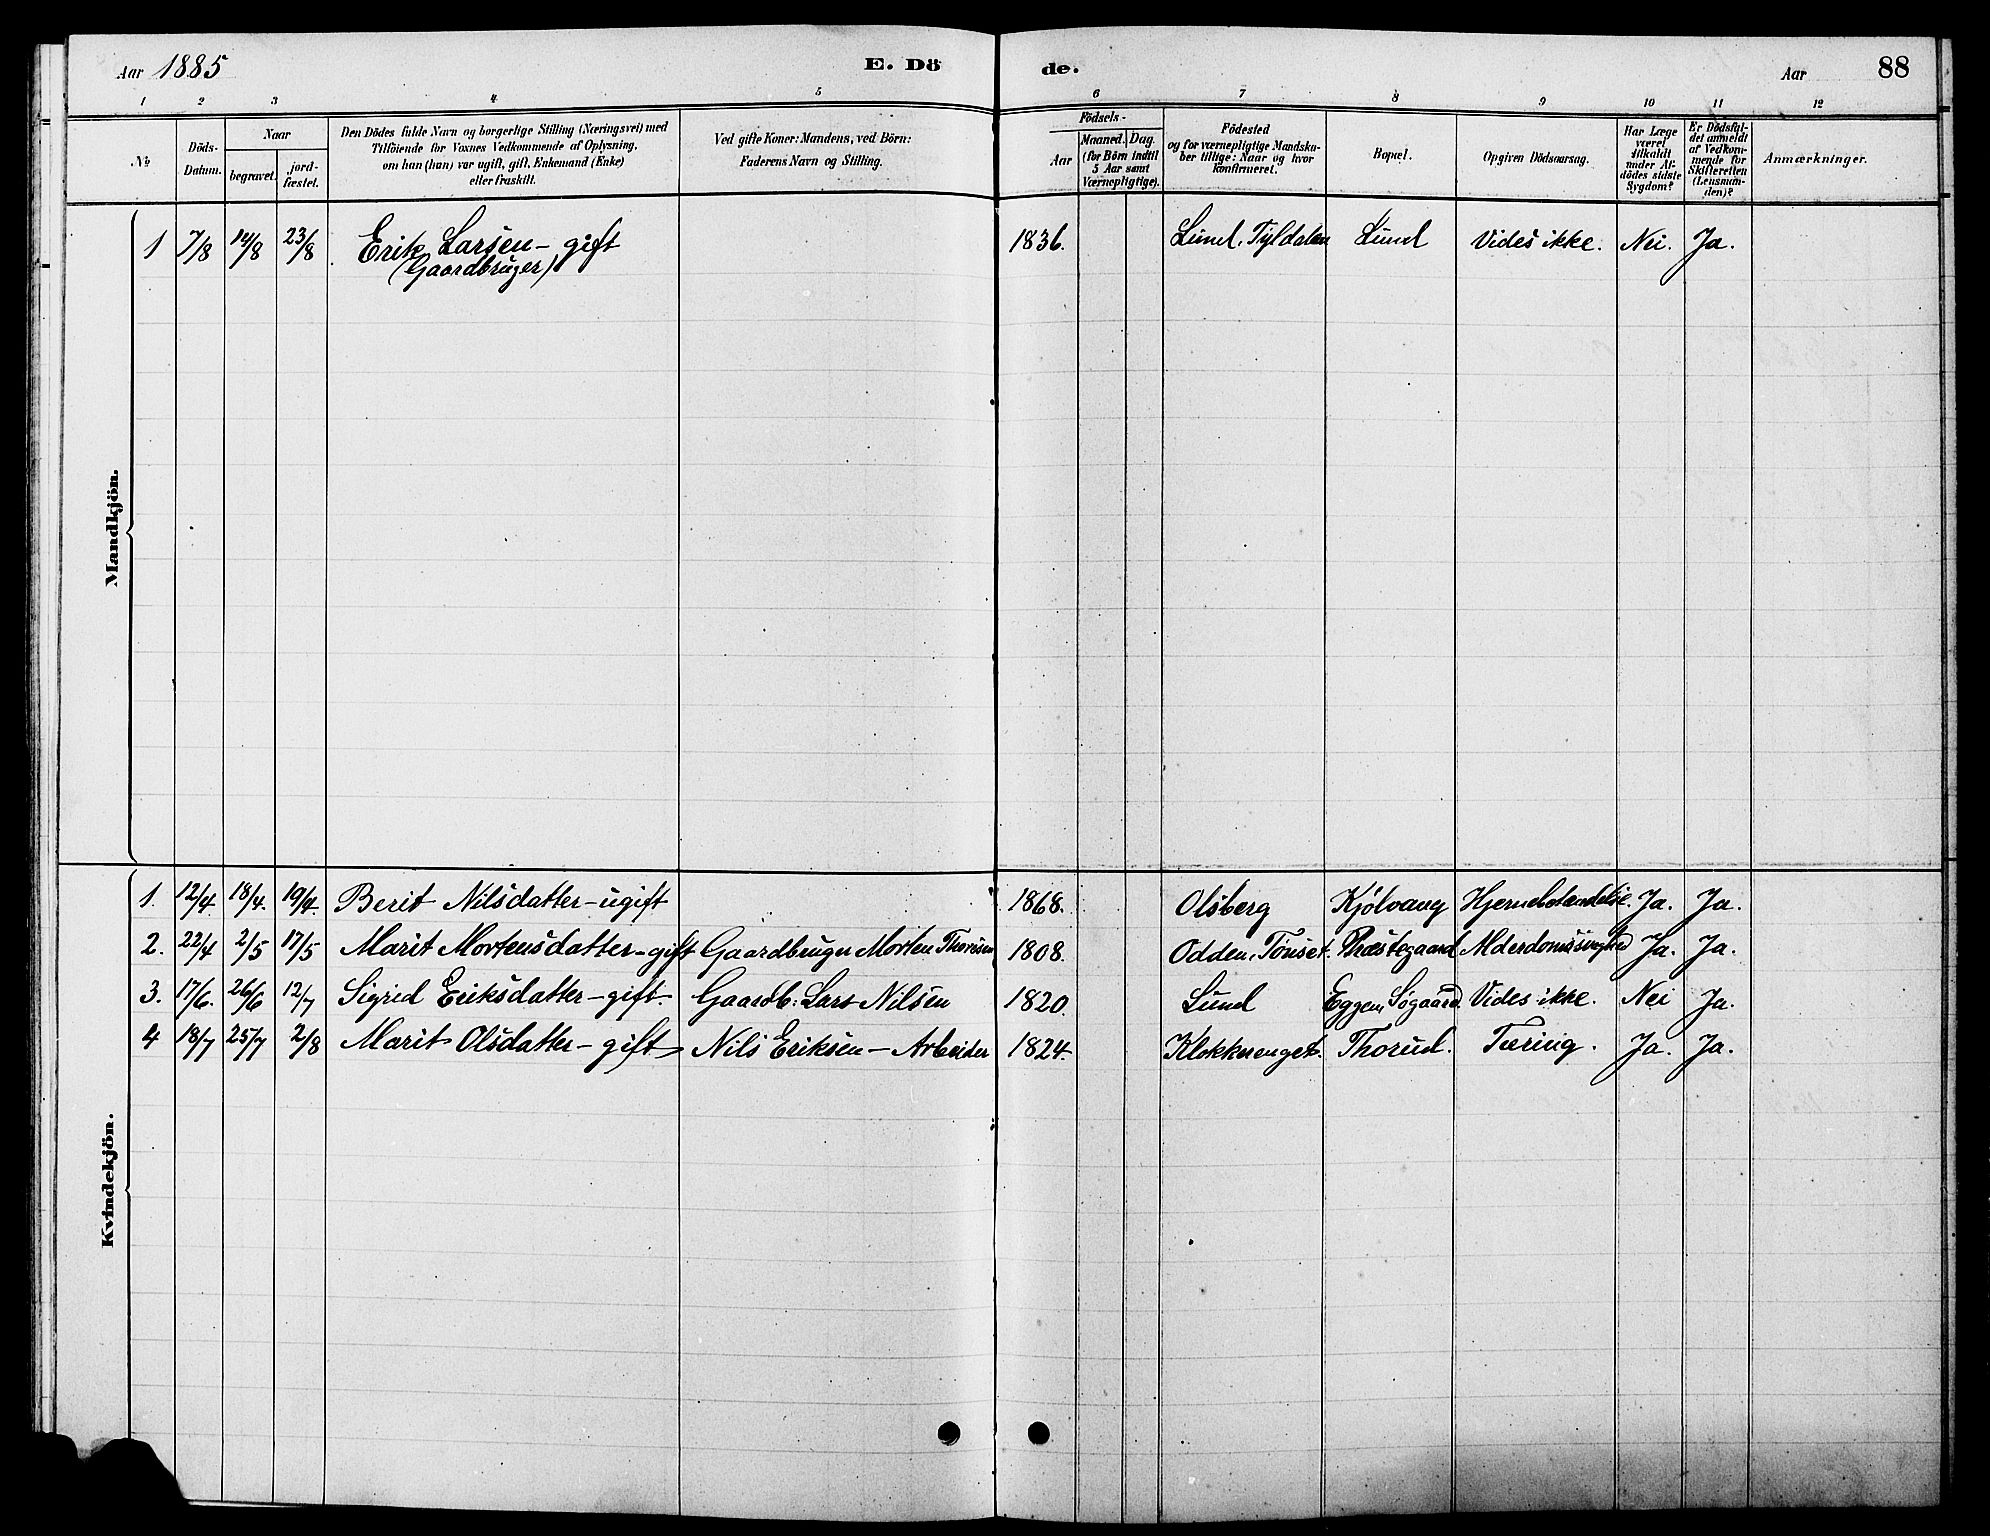 Aar 1885
E. Dö
de.
Aar
88
1 2 3 4 5 6 7 8 9 10 11 12
No
Döds-
Datum.
Naar
begravet.
jord-
fæstet.
Den Dödes fulde Navn og borgerlige Stilling (Næringsvei) med
Tilföiende for Voxnes Vedkommende af Oplysning,
om hun (han) var ugift, gift, Enkemand (Enke)
eller fraskilt.
Ved gifte Koner: Mandens, ved Börn:
Faderens Navn og Stilling.
Födsels-
Aar
Maaned. Dag.
(for Börn indtil
5 Aar samt
Værnepligtige).
Födested
og for værnepligtige Mandska-
ber tillige: Naar og hvor
konfirmeret.
Bopæl.
Opgiven Dödsaarsag.
Har Læge
været
tilkaldt
under Af-
dödes sidste
Sygdom?
Er Dödsfal-
det anmeldt
af Vedkom-
mende for
Skifteretten
(Lensman-
den)?
Anmærkninger.
Mandkjön.
1 7/8 14/8 23/8 Erik Larsen - gift 1836. Lund, Tyldalen Lund Vides ikke. Nei. Ja.
(Gaardbruger)
Kvindekjön.
1. 12/4 18/4. 19/4. Berit Nilsdatter - ugift 1868. Olsberg Kjölvang Hjernebetændelse. Ja. Ja.
2. 22/4 2/5 17/5 Marit Mortensdatter - gift Gaardbruger Morten Thoresen 1808. Odden, Tönset. Præstegaard Alderdomssvaghed Ja. Ja.
3. 17/6. 26/6 12/7 Sigrid Eriksdatter - gift. Gaardb: Lars Nilsen 1820. Lund Eggen, Sögaard. Vides ikke. Nei Ja.
4 18/7 25/7 2/8 Marit Olsdatter - gift Nils Eriksen - Arbeider 1824. Klokkerenget. Thorud. Tæring. Ja. Ja.